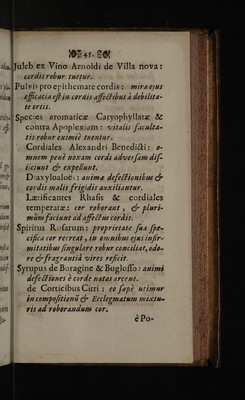 45.
Juleb ex Vino Arnoldi de Villa nova:
cordis robur tuetur.
Pulvis pro epithemate cordis: mira ejus
efficacia est in cordis affectibus à debilita-
te ortis.
Species aromaticæ Caryophyllatæ &
contra Apoplexiam: vitalis faculta-
tis robur eximiè tuentur.
Cordiales Alexandri Benedicti: o-
mnem penè noxam cordi adversam dis-
jiciunt & expellunt.
Diaxyloaloës: animæ defectionibus &
cordis malis frigidis auxiliantur.
Lætificantes Rhasis & cordiales
temperatæ: cor roborant, & pluri-
mùm faciunt ad affectus cordis.
Spiritus Rosarum: proprietate sua spe-
cifica cor recreat, in omnibus ejus infir-
mitatibus singulare robur conciliat, odo-
re & fragrantiâ vires reficit.
Syrupus de Boragine & Buglosso: animi
defectiones è corde natas arcent.
de Corticibus Citri: eo sæpè utimur
in compositionū & Ecclegmatum mixtu-
ris ad roborandum cor.
è Po-